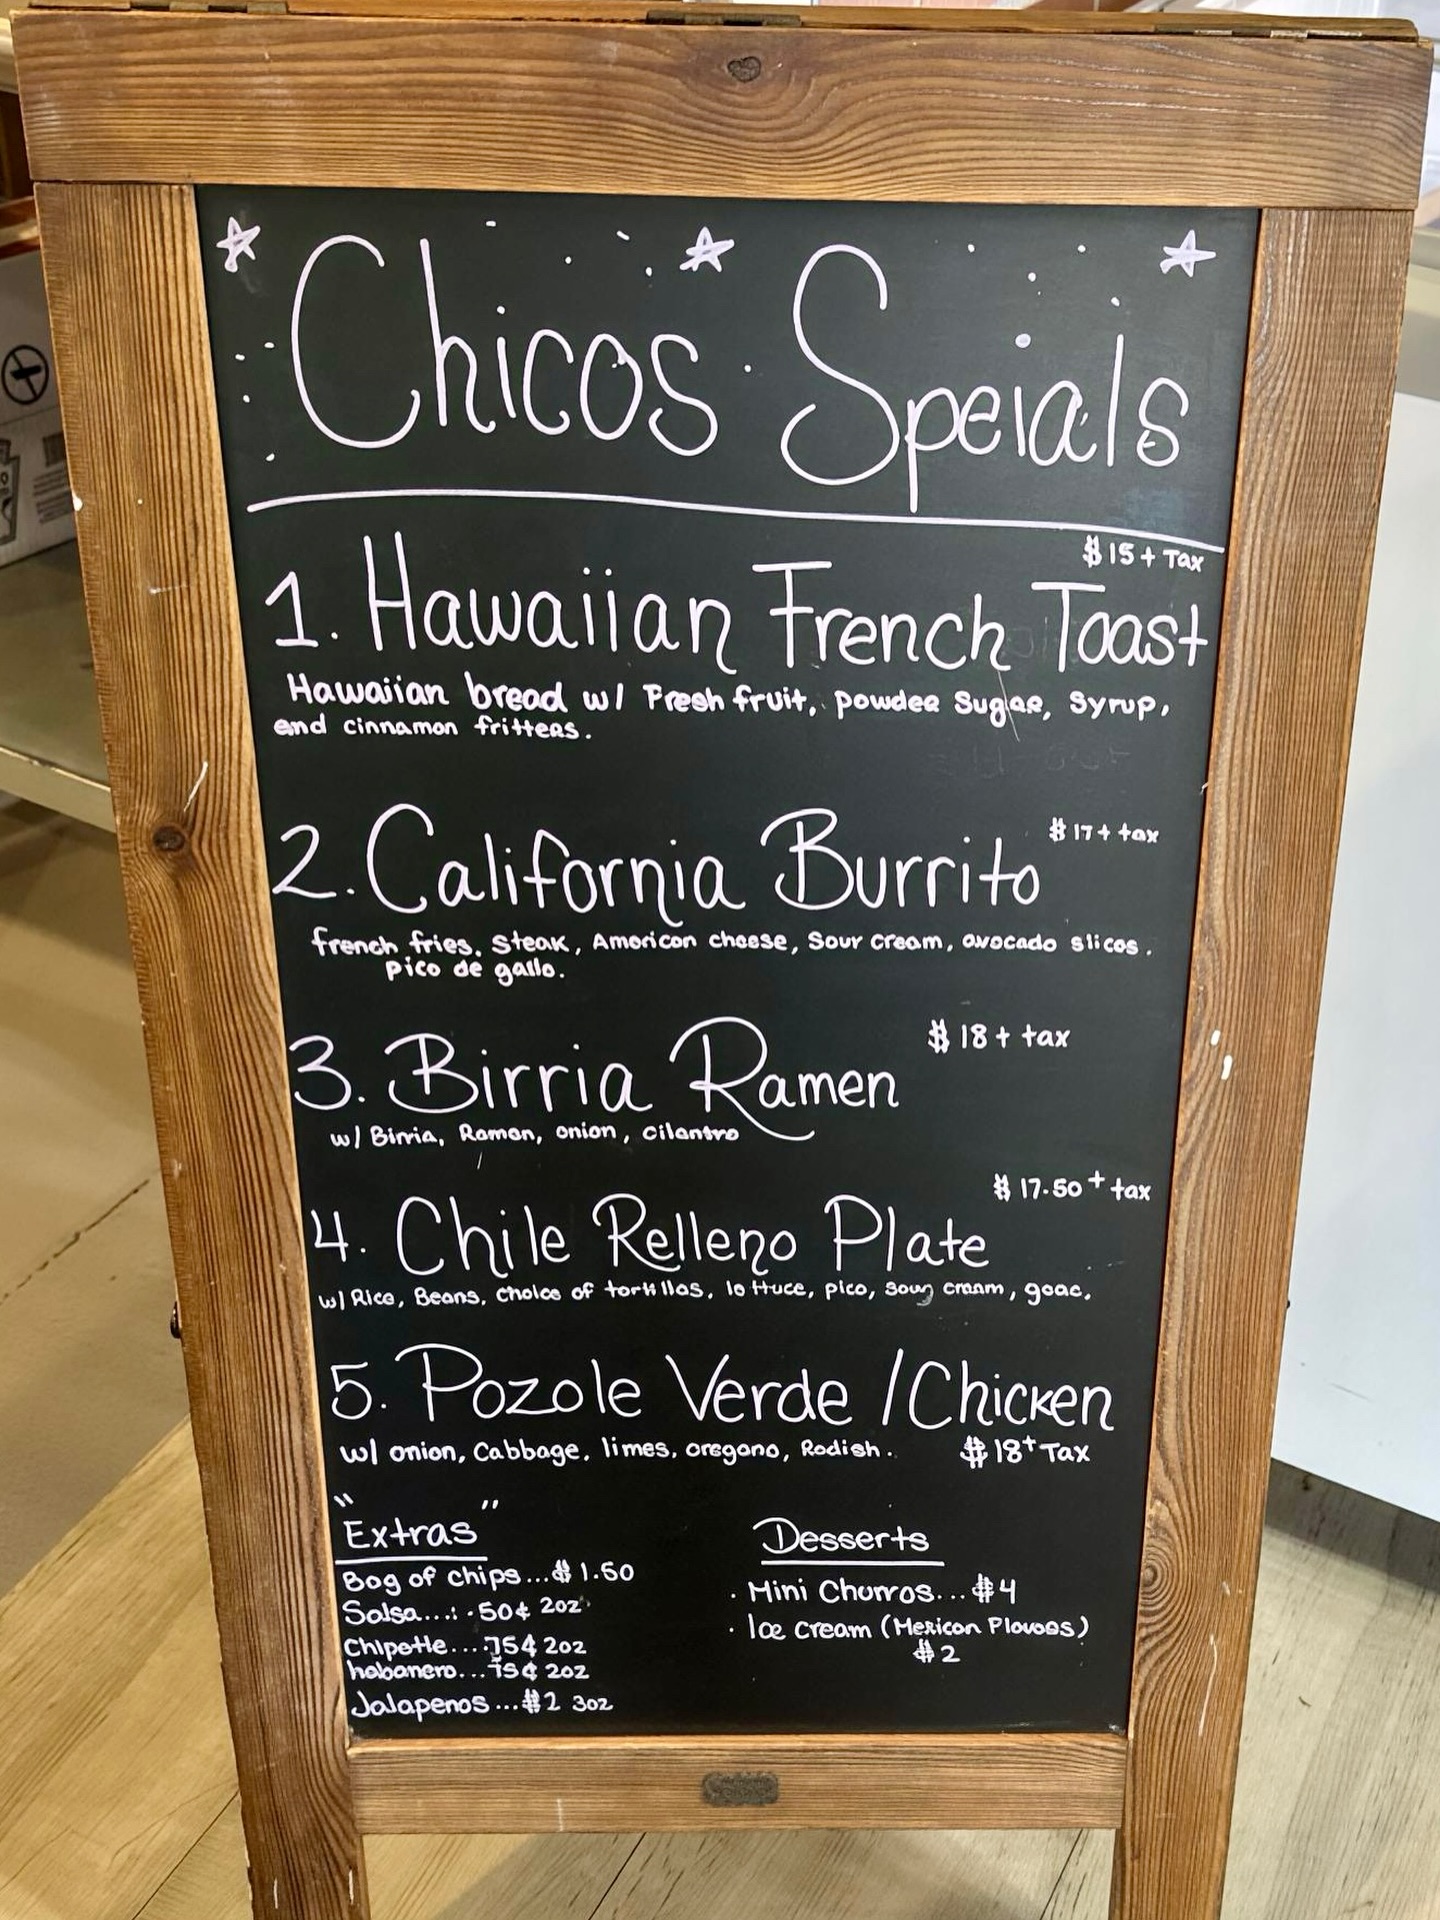 Chicos Speials
$15 + Tax
1. Hawaiian French Toast
Hawaiian bread w/ Fresh fruit, powder Sugar, Syrup,
and cinnamon fritters.
$17 + tax
2. California Burrito
french fries, steak, American cheese, Sour cream, avocado slices.
pico de gallo.
$18 + tax
3. Birria Ramen
w/ Birria, Ramen, onion, cilantro
$17.50 + tax
4. Chile Relleno Plate
w/ Rice, Beans, choice of tortillas, lettuce, pico, sour cream, guac.
5. Pozole Verde / Chicken
w/ onion, Cabbage, limes, oregano, Radish. $18 + Tax
"Extras"
Bag of chips...$1.50
Salsa....50¢ 2oz
Chipotle....75¢ 2oz
habanero...75¢ 2oz
Jalapenos...$2 3oz
Desserts
· Mini Churros...$4
· Ice cream (Mexican Flavors)
$2